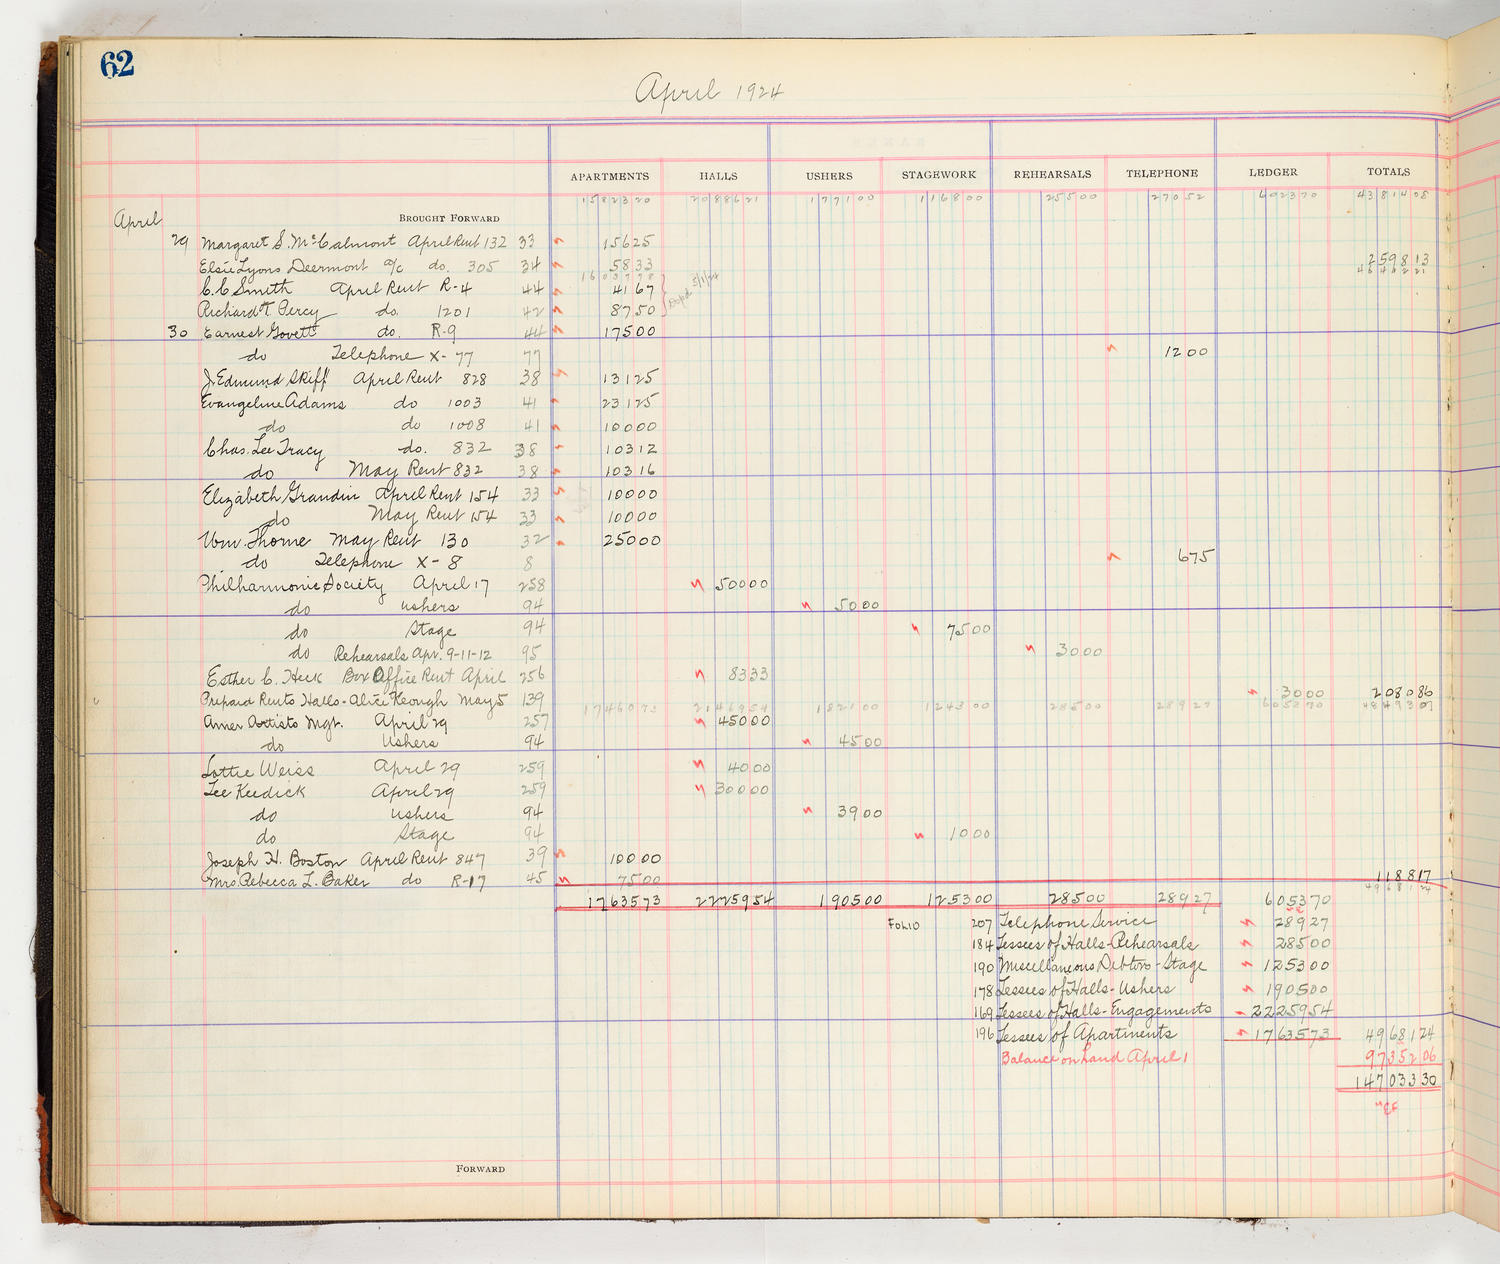 62
April 1924
APARTMENTS HALLS USHERS STAGEWORK REHEARSALS TELEPHONE LEDGER TOTALS
1582320 2088621 177100 116800 25500 27052 602370 4381405
April BROUGHT FORWARD
29 Margaret S. McCalmont April Rent 132 33 15625
Elsie Lyons Deermont a/c do. 305 34 5833 259813
1603778 4641221
C.C Smith April Rent R-4 44 4167
Richard T Percy do. 1201 42 8750
Depd 5/1/24
30 Earnest Govett do. R-9 44 17500
do Telephone X-77 77 1200
J. Edmund Skiff April Rent 828 38 13125
Evangeline Adams do 1003 41 23125
do do 1008 41 10000
Chas. Lee Tracy do. 832 38 10312
do May Rent 832 38 10316
Elizabeth Grandin April Rent 154 33 10000
do May Rent 154 33 10000
Wm. Thorne May Rent 130 32 25000
do Telephone X-8 8 675
Philharmonic Society April 17 258 50000
do Ushers 94 5000
do Stage 94 7500
do Rehearsals Apr. 9-11-12 95 3000
Esther C. Heck Box Office Rent April 256 8333
Prepaid Rents Halls-Alice Keough May 5 139 3000 208086
1746073 2146954 182100 124300 28500 28927 605370 4849307
Amer Artists Mgt. April 29 257 45000
do Ushers 94 4500
Lottie Weiss April 29 259 4000
Lee Keedick April 29 259 30000
do Ushers 94 3900
do Stage 94 1000
Joseph H. Boston April Rent 847 39 10000
Mrs. Rebecca L. Baker do R-17 45 7500 118817
4968124
1763573 2225954 190500 125300 28500 28927 605370
FOLIO 207 Telephone Service 28927
184 Lessees of Halls-Rehearsals 28500
190 Miscellaneous Debtors-Stage 125300
178 Lessees of Halls-Ushers 190500
169 Lessees of Halls-Engagements 2225954
196 Lessees of Apartments 1763573 4968124
Balance on hand April 1 9735206
14703330
FORWARD